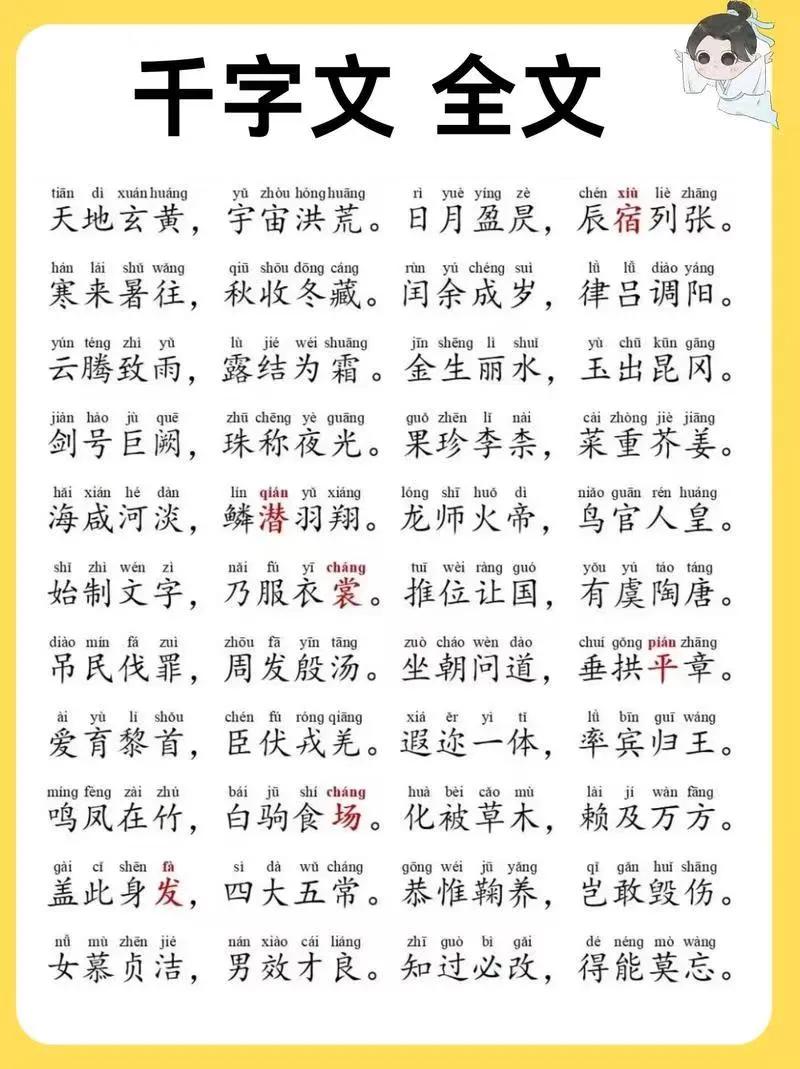 千字文 全文
tiān dì xuán huáng yǔ zhòu hóng huāng rì yuè yíng zè chén xiù liè zhāng
天地玄黄，宇宙洪荒。日月盈昃，辰宿列张。
hán lái shǔ wǎng qiū shōu dōng cáng rùn yú chéng suì lǜ lǚ diào yáng
寒来暑往，秋收冬藏。闰余成岁，律吕调阳。
yún téng zhì yǔ lù jié wéi shuāng jīn shēng lì shuǐ yù chū kūn gāng
云腾致雨，露结为霜。金生丽水，玉出昆冈。
jiàn hào jù quē zhū chēng yè guāng guǒ zhēn lǐ nài cài zhòng jiè jiāng
剑号巨阙，珠称夜光。果珍李柰，菜重芥姜。
hǎi xián hé dàn lín qián yǔ xiáng lóng shī huǒ dì niǎo guān rén huáng
海咸河淡，鳞潜羽翔。龙师火帝，鸟官人皇。
shǐ zhì wén zì nǎi fú yī cháng tuī wèi ràng guó yǒu yú táo táng
始制文字，乃服衣裳。推位让国，有虞陶唐。
diào mín fá zuì zhōu fā yīn tāng zuò cháo wèn dào chuí gǒng pián zhāng
吊民伐罪，周发殷汤。坐朝问道，垂拱平章。
ài yù lí shǒu chén fú róng qiāng xiá ěr yì tǐ lǜ bīn guī wáng
爱育黎首，臣伏戎羌。遐迩一体，率宾归王。
míng fèng zài zhú bái jū shí cháng huà bèi cǎo mù lài jí wàn fāng
鸣凤在竹，白驹食场。化被草木，赖及万方。
gài cǐ shēn fà sì dà wǔ cháng gōng wéi jū yǎng qǐ gǎn huǐ shāng
盖此身发，四大五常。恭惟鞠养，岂敢毁伤。
nǚ mù zhēn jié nán xiào cái liáng zhī guò bì gǎi dé néng mò wàng
女慕贞洁，男效才良。知过必改，得能莫忘。